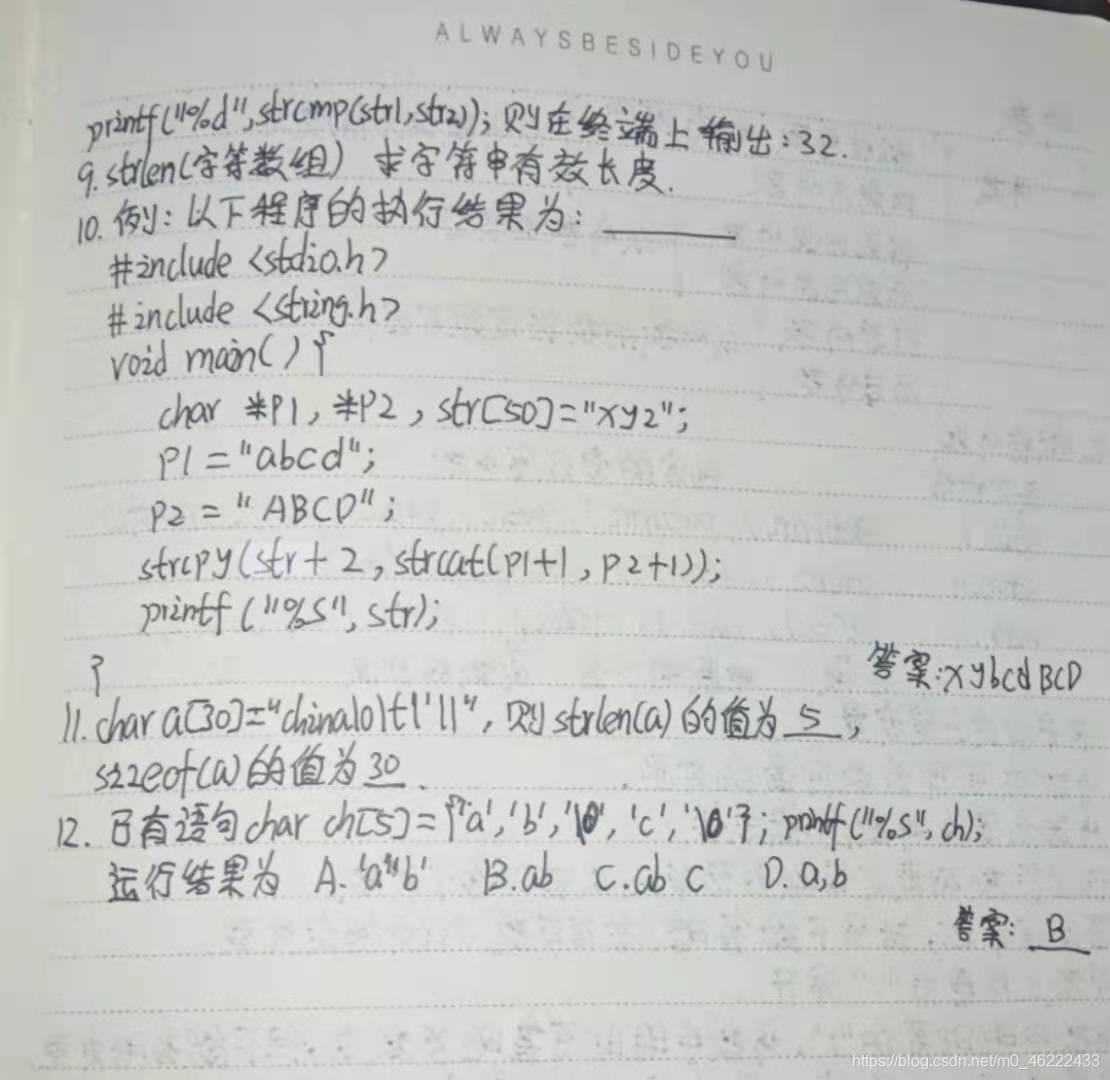 ALWAYSBESIDEYOU
printf("%d",strcmp(str1,str2));则在终端上输出:32.
9.strlen(字符数组) 求字符串有效长度.
10.例:以下程序的执行结果为:______
#include <stdio.h>
#include <string.h>
void main(){
char *P1,*P2,str[50]="xyz";
P1="abcd";
P2="ABCD";
strcpy(str+2,strcat(p1+1,p2+1));
printf("%s",str);
}
答案:xybcdBCD
11.char a[30]="china\0\t\'\\",则strlen(a)的值为5,
sizeof(a)的值为30.
12.已有语句char ch[5]={'a','b','\0','c','\0'};printf("%s",ch);
运行结果为 A.'a''b' B.ab C.ab c D.a,b
答案:B
https://blog.csdn.net/m0_46222433